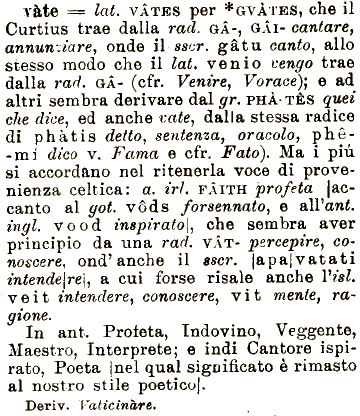 vàte = lat. VÂTES per *GVÀTES, che il
Curtius trae dalla rad. GÂ-, GÂI- cantare,
annunziare, onde il sscr. gâtu canto, allo
stesso modo che il lat. venio vengo trae
dalla rad. GÂ- (cfr. Venire, Vorace); e ad
altri sembra derivare dal gr. PHÀ-TÊS quei
che dice, ed anche vate, dalla stessa radice
di phàtis detto, sentenza, oracolo, phê-
-mi dico v. Fama e cfr. Fato). Ma i più
si accordano nel ritenerla voce di prove-
nienza celtica: a. irl. FÂITH profeta |ac-
canto al got. vôds forsennato, e all'ant.
ingl. vood inspirato|, che sembra aver
principio da una rad. VÂT- percepire, co-
noscere, ond'anche il sscr. |apa|vatati
intende|re|, a cui forse risale anche l'isl.
veit intendere, conoscere, vit mente, ra-
gione.
In ant. Profeta, Indovino, Veggente,
Maestro, Interprete; e indi Cantore ispi-
rato, Poeta |nel qual significato è rimasto
al nostro stile poetico|.
Deriv. Vaticinàre.